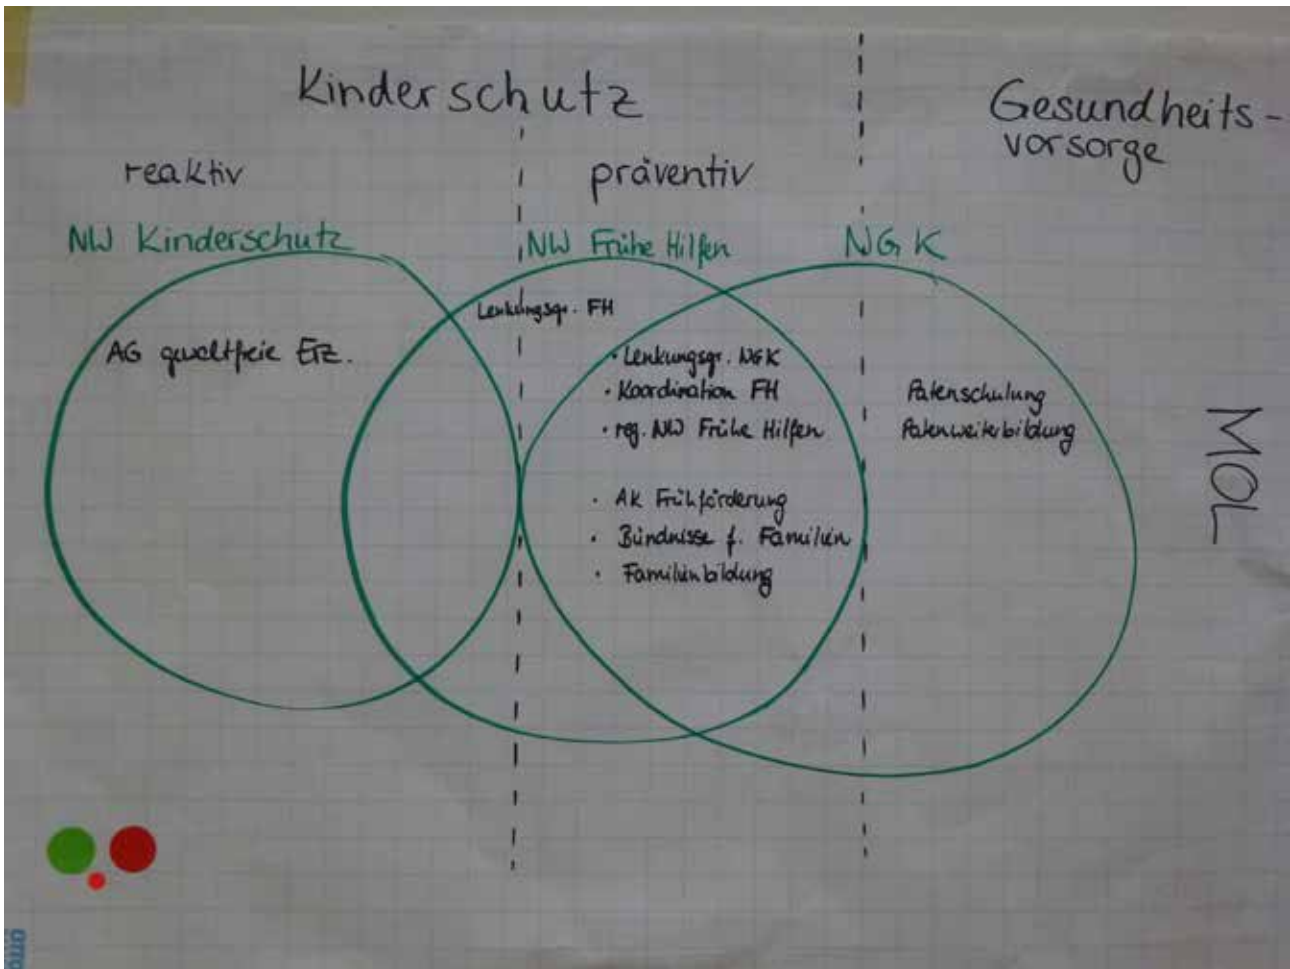 Kinderschutz
Gesundheits-
vorsorge
reaktiv
präventiv
NW Kinderschutz
NW Frühe Hilfen
NGK
Lenkungsgr. FH
AG gewaltfreie Erz.
· Lenkungsgr. NGK
· Koordination FH
· reg. NW Frühe Hilfen
· AK Frühförderung
· Bündnisse f. Familien
· Familienbildung
Patenschulung
Patenweiterbildung
MOL